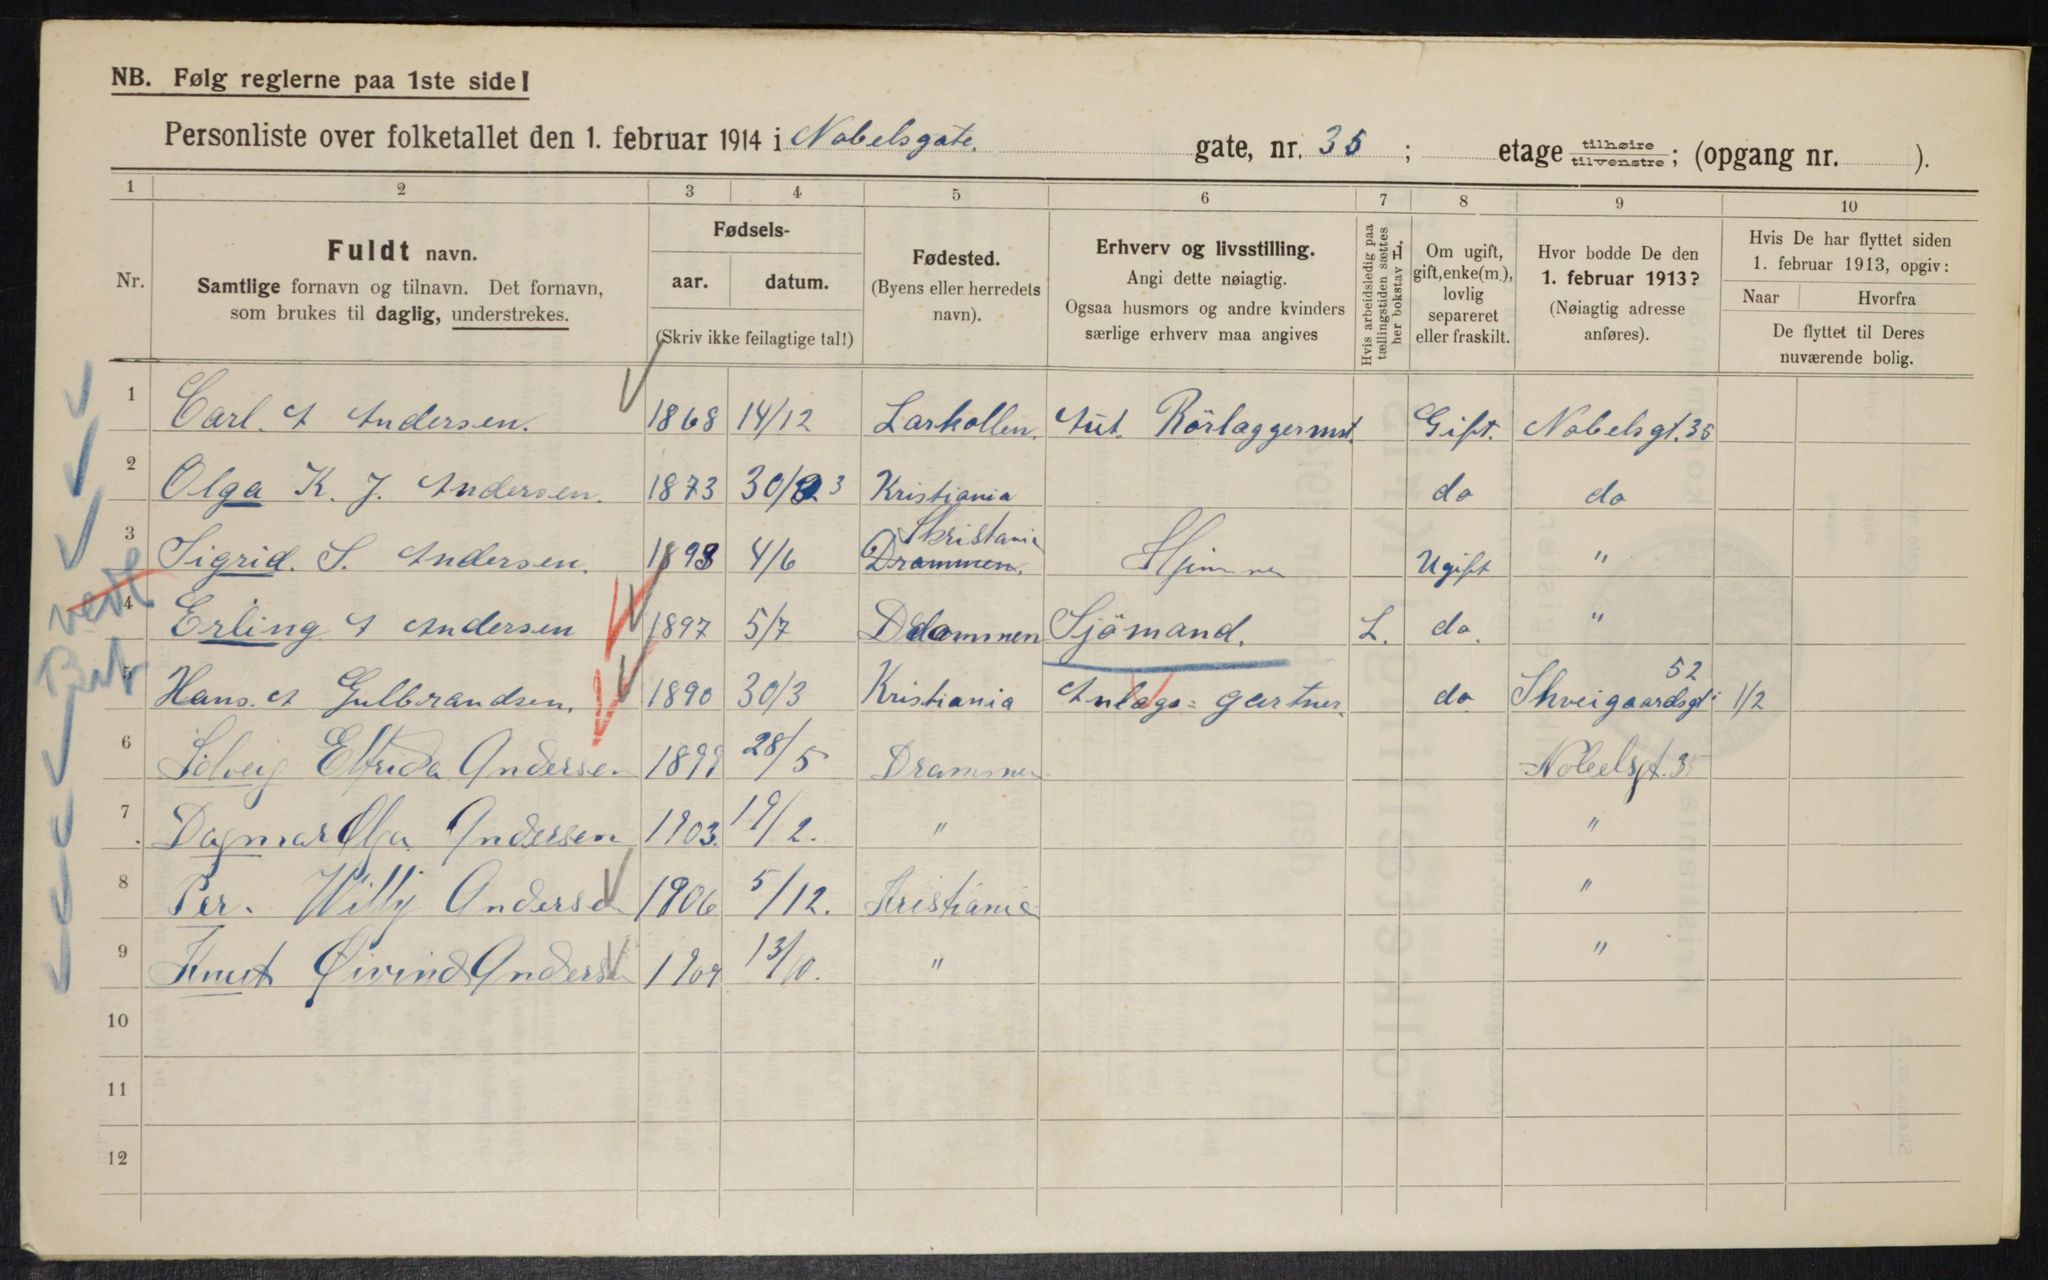 NB. Følg reglerne paa 1ste side!
Personliste over folketallet den 1. februar 1914 i Nobelsgate. gate, nr. 35 ; etage tilhøire tilvenstre ; (opgang nr. ).
1 2 3 4 5 6 7 8 9 10
Nr.
Fuldt navn.
Samtlige fornavn og tilnavn. Det fornavn,
som brukes til daglig, understrekes.
Fødsels-
aar. datum.
(Skriv ikke feilagtige tal!)
Fødested.
(Byens eller herredets
navn).
Erhverv og livsstilling.
Angi dette nøiagtig.
Ogsaa husmors og andre kvinders
særlige erhverv maa angives
Hvis arbeidsledig paa
tællingstiden sættes
her bokstav L,
Om ugift,
gift, enke(m.),
lovlig
separeret
eller fraskilt.
Hvor bodde De den
1. februar 1913?
(Nøiagtig adresse
anføres).
Hvis De har flyttet siden
1. februar 1913, opgiv:
Naar Hvorfra
De flyttet til Deres
nuværende bolig.
1 Carl. A Andersen. 1868 14/12 Larkollen. Aut. Rörlæggermst. Gift. Nobelsgt. 35
2 Olga K. J. Andersen. 1873 30/ 3 Kristiania do do
3 Sigrid. S. Andersen. 1898 4/6 Drammen. Kristiania Hjemme Ugift "
4 Erling A Andersen 1897 5/7 Drammen Sjömand. L. do. "
5 Hans. A Gulbrandsen. 1890 30/3 Kristiania Anlags= gartner. do Skveigaardsgt 52 1/2
6 Solveig Elfrida Andersen 1899 28/5 Drammen Nobelsgt. 35
7 Dagmar Olga Andersen 1903. 19/2. " "
8 Per. Willy Andersen 1906 5/12. Kristiania "
9 Knut Øivind Andersen 1909 13/10. " "
10
11
12